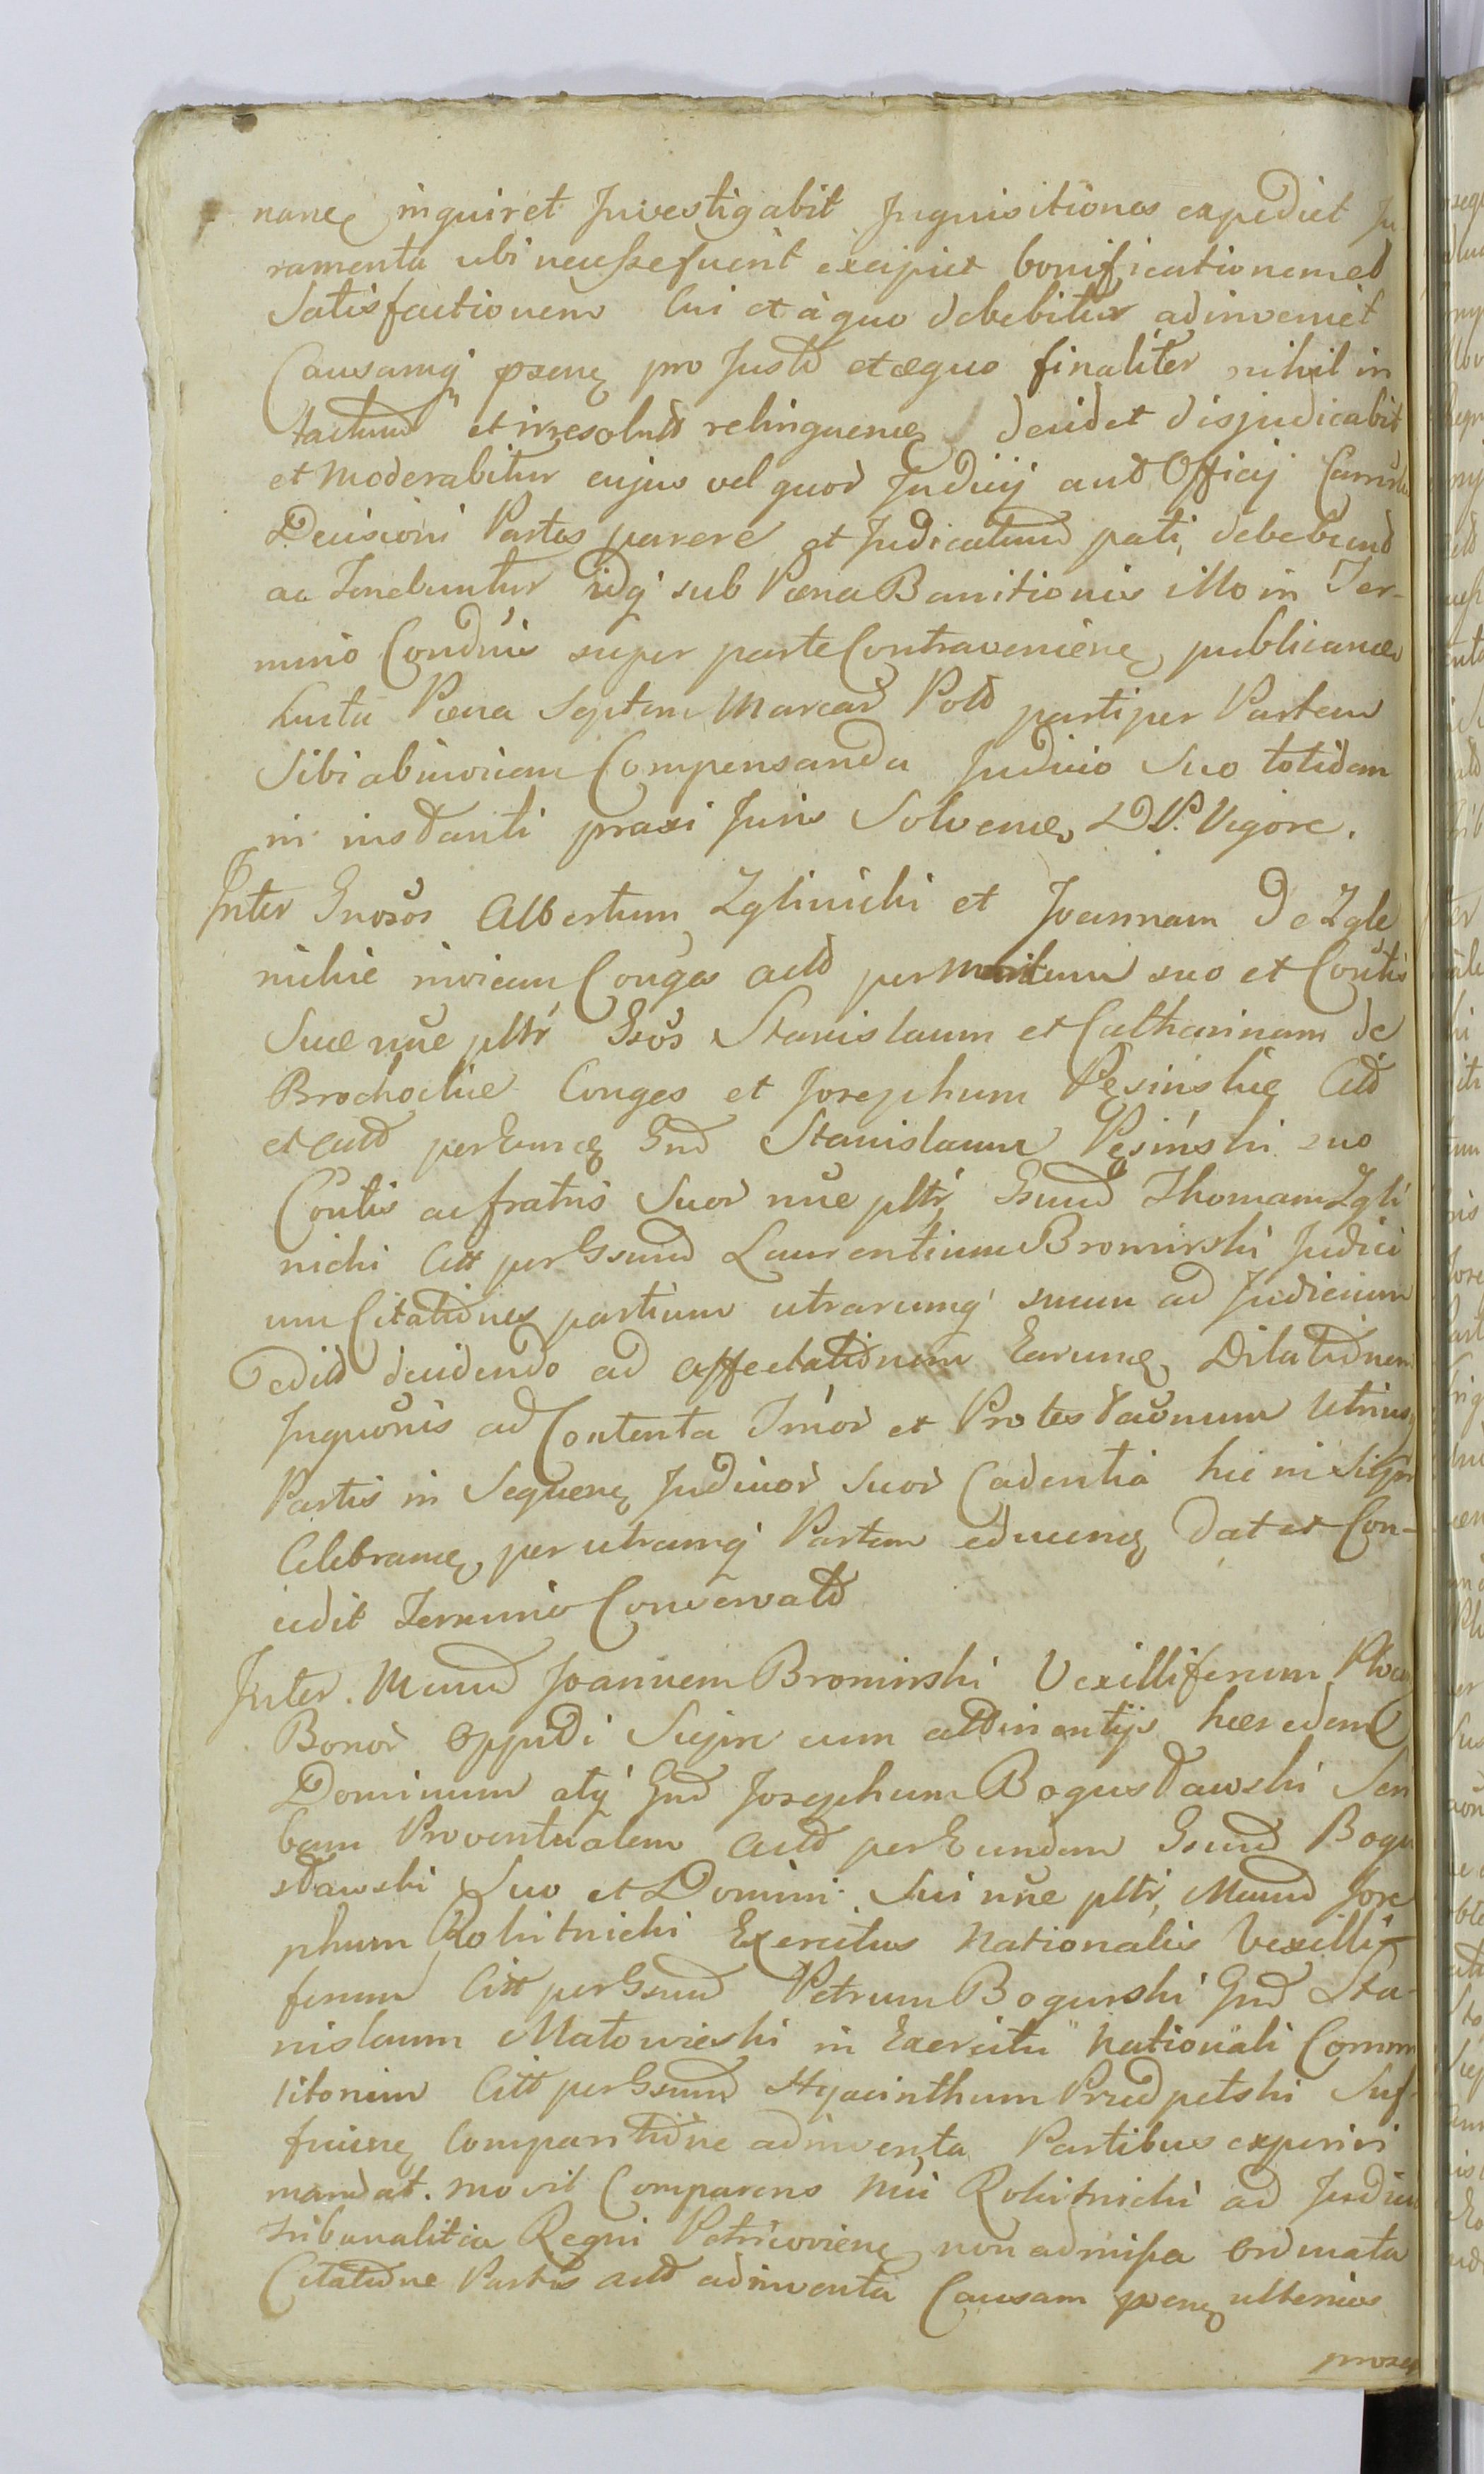 nane inquiret Investigabit Inquisitiones expediet Ju
ramenta ubi necesse fuerit excipiet bonificationem et
Satisfactionem Cui et à quo debebitur adinveniet
Causamq. praesene pro Justo et aequo finaliter nihil in
tactum et irresolutt relinquene decidet disjudicabit
et Moderabitur cujus vel quor Judicij aut Officij
Decisioni Partes parere et Judicatum pati, debebunt
ac Tenebuntur idq sub Paena Banitionis illo in Ter-
mino Condnis super parte Contraveniene publicane
Luita Paena Septem Marcar Poll parti per Partem
Sibi abinvicem Compensanda Judicio Suo totidem
in instanti praxi Juris Solvene D P. Vigore.
Inter Gnosos Albertum Zglinicki et Joannam De Zgle
nickie invicem Conges actt per maritum suo et Contis
Suae nne pltr Gsos Stanislaum et Catharinam de
Brochockie Conges et Josephum Pęsinskie Citt
et actt per Eunde Gnd Stanislaum Pęsinski suo
Contis ac fratris Suor nne pltr, Gsum Thomam Zgli
nicki Citt per Gsum Laurentium Bromirski Judici
um Citationes partium utrarumq suum ad Judicium
editt decidendo ad affectationem Earune Dilationem
Inquonis ad Contenta Tmor et Protestaonum Utrius
Partis in Sequene Judicior Suor Cadentia hic in Sierpc
Celebrane per utramq Partem educene dat et Con-
cedit Termino Conservatt
Inter. Mnum Joannem Bromirski Vexilliferum Ploce
Bonor Oppidi Sieprc cum attinentijs haeredem
Dominum atq Gnd Josephum Bogusławski Scri
bam Proventualem actt per Eundem Gsum Bogu
sławski Suo et Domini Sui nne pltr, Mnum Jose
phum Rokitnicki Exercitus Nationalis Vexilli-
ferum Citt per Gsum Petrum Bogurski Gnd Sta-
nislaum Małowieski in Exercitu Nationali Comm
litonem Citt per Gsum Hyacinthum Przedpełski Suf-
ficiene Comparitione adinventa Partibus experiri
mandat. Movit Comparens Mni Rokitnicki ad Judicia
Tribunalitia Regni Petricoviene non admissa ordinata
Citatione Partis actt adinventa Causam praesene ulterius